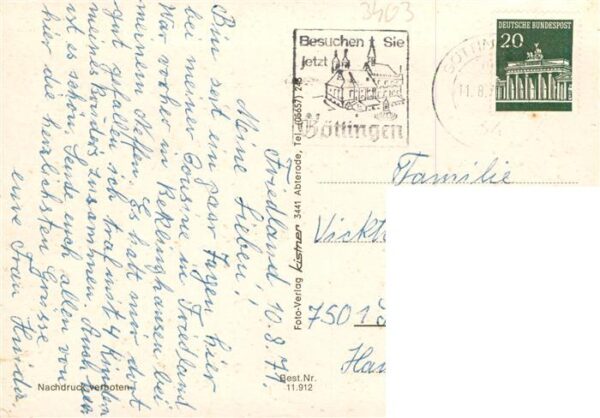 3403
Besuchen Sie
jetzt
Göttingen
11.8.
34
DEUTSCHE BUNDESPOST
20
Friedland 10.8.71.
Meine Lieben!
Bin seit ein paar Tagen hier
bei meiner Cousine in Friedland
War vorher in Reklinghausen bei
meinem Neffen. Es hat mir dort
gut gefallen ich traf mit 4 Kindern
meines Bruders zusammen. Auch hier
ist es schön. Sende euch allen von
hier die herzlichsten Grüsse
eure Frau
Familie
7501
Foto-Verlag Kistner 3441 Abterode, Tel. (05657) 246
Nachdruck verboten
Best.Nr.
11.912